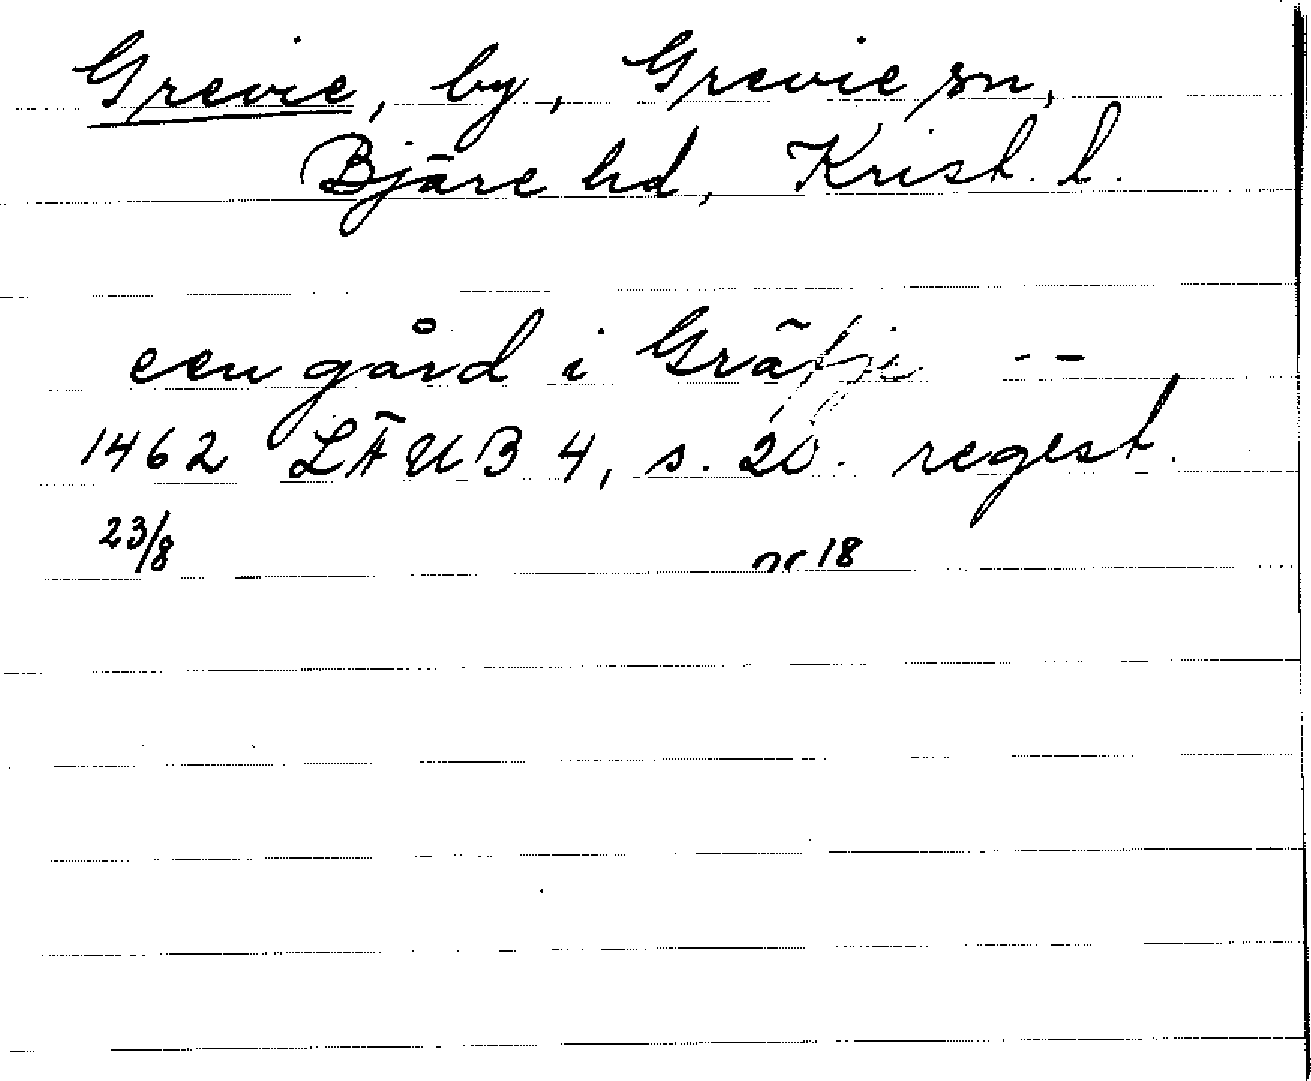 Grevie, by, Grevie sn,
Bjäre hd, Krist. l.
een gård i Gräfje --
1462 LÄUB 4, s. 20. regest.
23/8 nr 18